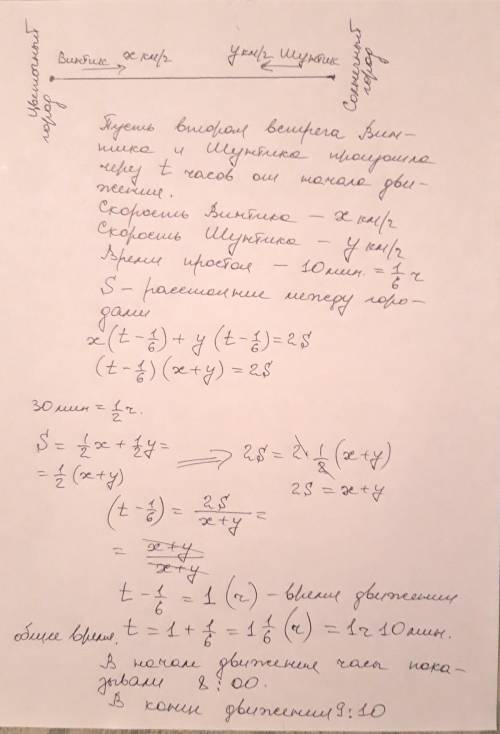 Винтик x км/ч y км/ч Шунтик
Цветочный город
Солнечный город
Пусть вторая встреча Вин-
тика и Шунтика произошла
через t часов от начала дви-
жения.
Скорость Винтика – x км/ч
Скорость Шунтика – y км/ч
Время простоя – 10 мин. = 1/6 ч
S – расстояние между горо-
дами
x(t – 1/6) + y(t – 1/6) = 2S
(t – 1/6)(x+y) = 2S
30 мин = 1/2 ч.
S = 1/2 x + 1/2 y =
= 1/2 (x+y)
⟹ 2S = 2·1/2 (x+y)
2S = x+y
(t – 1/6) = 2S/(x+y) =
= (x+y)/(x+y)
t – 1/6 = 1 (ч) – время движения
общее время. t = 1 + 1/6 = 1 1/6 (ч) = 1ч 10 мин.
В начале движения часы пока-
зывали 8:00.
В конце движения 9:10